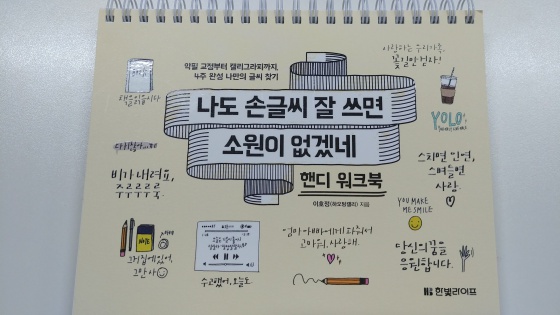 악필 교정부터 캘리그라피까지,
4주 완성 나만의 글씨 찾기
나도 손글씨 잘 쓰면
소원이 없겠네
핸디 워크북
이호정(하오팅캘리) 지음
사랑하는 우리가족,
꽃길만 걷자!
YOLO
스치면 인연,
스며들면
사랑.
비가 내려요,
주루루루룩.
YOU MAKE
ME SMILE
NOTE
그거 집에 있어.
그만 사
수고했어, 오늘도
엄마 아빠에게 태워줘서
고마워, 사랑해.
당신의 꿈을
응원합니다.
한빛라이프